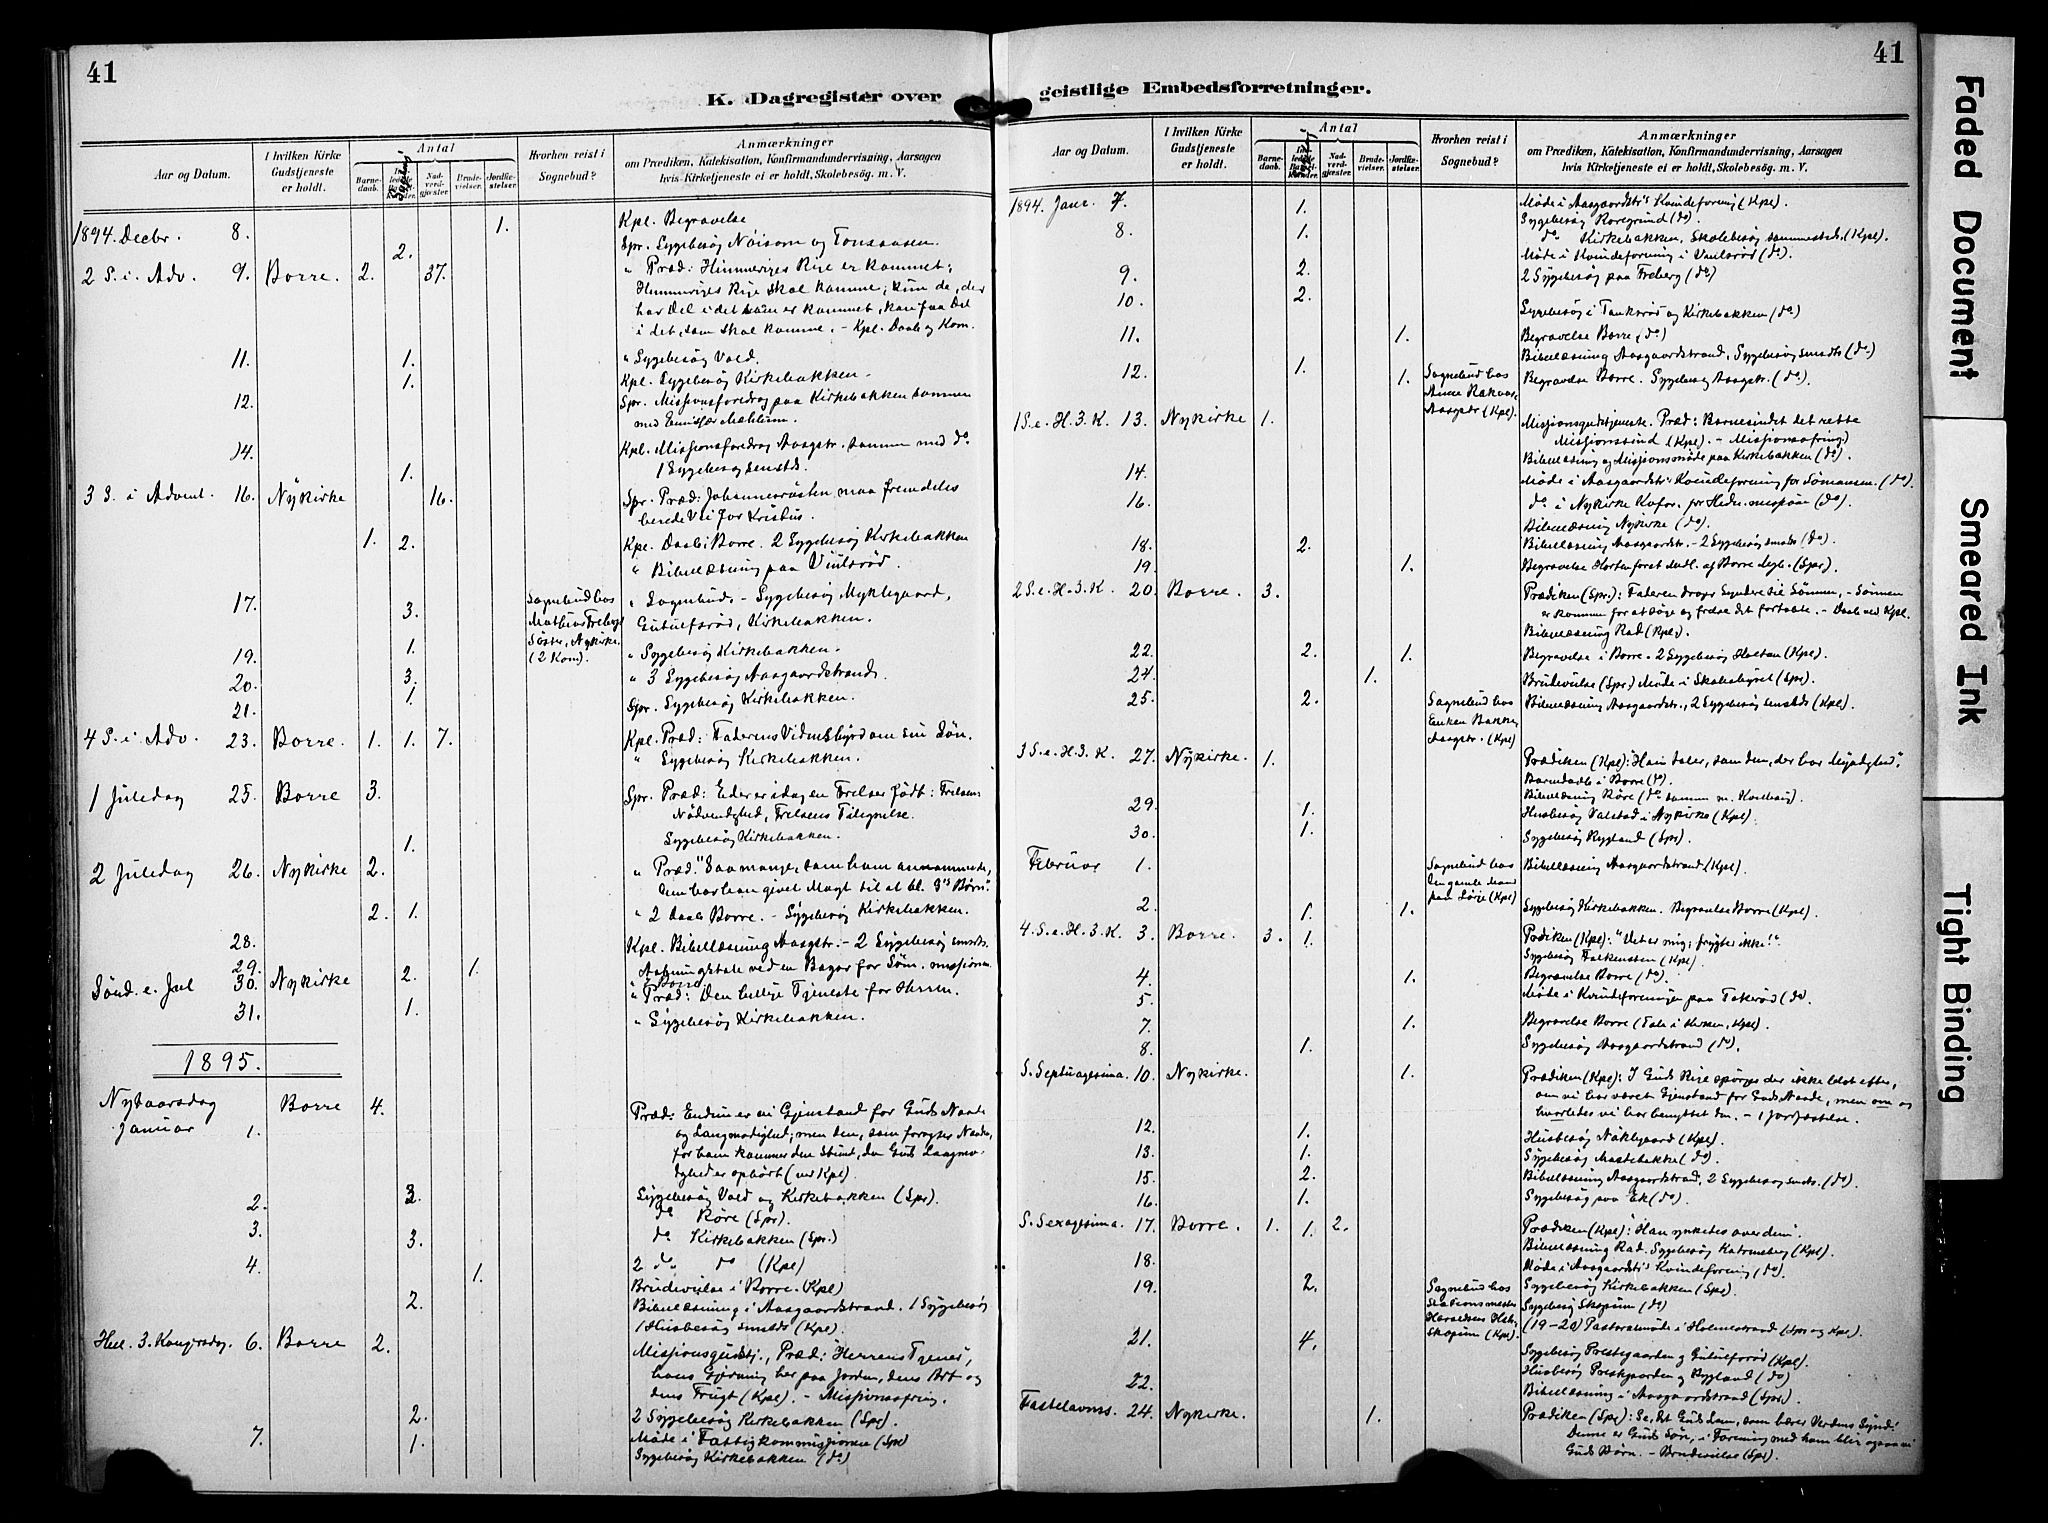 41
K. Dagregister over
Aar og Datum.
I hvilken Kirke Gudstjeneste er holdt.
Antal
Barnedaab.
Sygebesøg
Nadverdgjæster
Brudevielser.
Jordfæstelser.
Hvorhen reist i Sognebud?
Anmærkninger
om Prædiken, Katekisation, Konfirmandundervisning, Aarsagen
hvis Kirketjeneste ei er holdt, Skolebesøg. m. V.
1894. Decbr. 8. 1. Kpl. Begravelse
2. Spr. Sygebesøg Nöisom og Tonsaasen.
2 S. i. Adv. 9. Borre. 2. 37. " Præd: Himmeriges Rige er kommet;
Himmeriges Rige skal komme; kun de, der
har Del i det som er kommet, kan faa Del
i det, som skal komme. - Kpl. Daab og Kom.
11. 1. " Sygebesøg Vold.
1. Kpl. Sygebesøg Kirkebakken.
12. Spr. Missionsforedrag paa Kirkebakken sammen
med
14. Kpl. Missionsforedrag Aasgstr. sammen med do
1. 1 Sygebesøg smstds.
3 S. i Advent. 16. Nykirke 16. Spr. Præd: Johannesrösten maa fremdeles
berede Vei for Kristus.
1. 2. Kpl. Daab i Borre. 2 Sygebesøg Kirkebakken
" Bibellæsning paa Vintsröd.
17. 3. Sognebud hos " Sognebud. - Sygebesøg Myklegaard,
Mathias Frebergs Kirkebakken.
Söster, Nykirke.
(2 Kom).
19. 1. " Sygebesøg Kirkebakken.
20. 3. " 3 Sygebesøg Aasgaardstrand.
21. 1. Spr. Sygebesøg Kirkebakken.
4 S. i Adv. 23. Borre. 1. 1. 7. Kpl. Præd: Faderens Vidnesbyrd om sin Sön.
" Sygebesøg Kirkebakken.
1 Juledag 25. Borre 3. Spr. Præd: Eder er idag en Frelser födt: Frelsens
Nödvendighed, Frelsens Tilegnelse.
1. Sygebesøg Kirkebakken.
2 Juledag 26. Nykirke 2. " Præd. "Saamange, som ham annammede,
dem har han givet Magt til at bl. G's Børn".
2. 1. " 2 Daab Borre. - Sygebesøg Kirkebakken.
28. Kpl. Bibellæsning Aasgstr. - 2 Sygebesøg smstds.
29. 2. 1.
Sönd. e. Jul 30. Nykirke " Præd: Den hellige Tjeneste for Herren.
31. 1. " Sygebesøg Kirkebakken.
1895.
Nytaarsdag Borre 4. Præd: Endnu er vi Gjenstand for Guds Naade
Januar 1. og Langmodighed; men den, som foragter Naaden,
for ham kommer den Stund, da Guds Langmo-
dighed er ophört (ved Kpl)
2. 3. Sygebesøg Vold og Kirkebakken (Spr).
3. do Röre (Spr).
3. do Kirkebakken (Spr.)
4. 1. 2 do do (Kpl)
Brudevielse i Borre. Kpl)
2. Bibellæsning i Aasgaardstrand. 1 Sygebesøg
1 Husbesøg smstds (Kpl).
Hel. 3. Kongersdag 6. Borre 2. Missionsgudstj., Præd: Herrens Tjener,
hans Gjerning her paa Jorden, dens Art og
dens Frugt (Kpl). - Missionsofring.
2. 2 Sygebesøg Kirkebakken (Spr).
7. Møde i Fattigkommissionen (Spr)
1. Sygebesøg Kirkebakken (do)
41
geistlige Embedsforretninger.
Aar og Datum.
I hvilken Kirke Gudstjeneste er holdt.
Antal
Barnedaab.
Nadverdgjæster
Brudevielser.
Jordfæstelser.
Hvorhen reist i Sognebud?
Anmærkninger
om Prædiken, Katekisation, Konfirmandundervisning, Aarsagen
hvis Kirketjeneste ei er holdt, Skolebesøg. m. V.
1894. Janr. 7. 1. Møde i Aasgaardstr's Kvindeforening (Kpl).
Sygebesøg Roregrund (do)
8. 1. do Kirkebakken, Skolebesøg sammesteds. (Kpl).
Møde i Kvindeforening i Vintsröd (do).
9. 2. 2 Sygebesøg paa Freberg (do)
10. 2. Sygebesøg i Tanksröd og Kirkebakken (do)
11. 1. Begravelse Borre, (do)
Bibellæsning Aasgaardstrand, Sygebesøg smstds (do)
12. 1. 1. Sognebud hos Begravelse Borre. Sygebesøg Aasgstr. (do).
Anne
Aasgstr (Kpl).
1 S. e. H. 3. K. 13. Nykirke 1. Missionsgudstjeneste. Præd: Barnesindet det rette
Missionssind (Kpl). - Missionsofring)
Bibellæsning og Missionsmøde paa Kirkebakken (do).
14. Møde i Aasgaardstr's Kvindeforening for Sömansm. (do).
16. do i Nykirke Kvfor. for Hedn. missjon (do).
Bibellæsning Nykirke (do).
18. 2. Bibellæsning Aasgaardstr. - 2 Sygebesøg smstds (do).
19. 1. Begravelse Horten
2 S. e. H. 3. K. 20. Borre. 3. Prædiken (Spr.): Faderen drager Syndere til Sönnen, - Sönnen
er kommen for at söge og frelse det fortabte. - Daab ved Kpl.
Bibellæsning Rad (Kpl.).
22. 2. 1. Begravelse i Borre - 2 Sygebesøg Holtan (Kpl).
24. 1. Brudevielse (Spr.) Møde i Skolestyret (Spr).
25. 2. Sognebud hos Bibellæsning Aasgaardstr., 2 Sygebesøg smstds (Kpl).
Enken Bakke,
Aasgstr. (Kpl)
3 S. e. H. 3. K. 27. Nykirke. 1. Prædiken (Kpl): "Han taler, som den, der har Myndighed".
Barnedaab i Borre (do).
Bibellæsning Röre (do
29. 1. Husbesøg Valstad i Nykirke (Kpl).
30. 1. Sygebesøg Rygland (Spr).
Februar 1. Sognebud hos Bibellæsning Aasgaardstrand (Kpl).
en gammel Mand
paa (Kpl)
2. 1. 1. Sygebesøg Kirkebakken. Begravelse Borre (Kpl).
4. S. e. H. 3. K. 3. Borre. 3. 1. Prædiken (Kpl): "Det er mig; frygter ikke!".
Sygebesøg Falkensten (Kpl).
4. 1. Begravelse Borre (do).
5. Møde i Kvindeforeningen paa Takeröd (do
7. 1. Begravelse Borre (Tale i Kirken, Kpl).
8. 1. Sygebesøg Aasgaardstrand (do).
S. Septuagesima. 10. Nykirke. 1. Prædiken (Kpl): I Guds Rige spörges der ikke blot efter,
om vi har været Gjenstand for Guds Naade, men om og
hvorledes vi har benyttet den. - 1 Jordfæstelse.
12. 1. Husbesøg Nöklegaard (Kpl).
13. 1. Sygebesøg Mastebakke (do).
15. 2. Bibellæsning Aasgaardstrand, 2 Sygebesøg smstds. (do).
16. 1. Sygebesøg paa Ek (do).
S. Sexagesima. 17. Borre. 1. 1. 2. Prædiken (Kpl): "Han ynkedes over dem".
Bibellæsning Rad. Sygebesøg Katrineberg (Kpl).
18. Møde i Aasgaardstr's Kvindeforening (do).
19. 2. Sognebud hos Sygebesøg Kirkebakken (Spr).
Stationsmester Sygebesøg Skopum (do)
Skopum (Kpl). (19-20) Pastoralmøde i Holmestrand (Spr og Kpl).
21. 4. Sygebesøg Prestegaarden og (Kpl).
Husbesøg Prestegaarden og Rygland (do)
22. Bibellæsning i Aasgaardstrand (Spr).
Fastelavns. 24. Nykirke. 1. Prædiken (Spr): Se, det Guds Lam, som bærer Verdens Synd!
Denne er Guds Sön; i Forening med ham blir ogsaa vi
Guds Börn. - Brudevielse (Spr).
Faded Document
Smeared Ink
Tight Binding